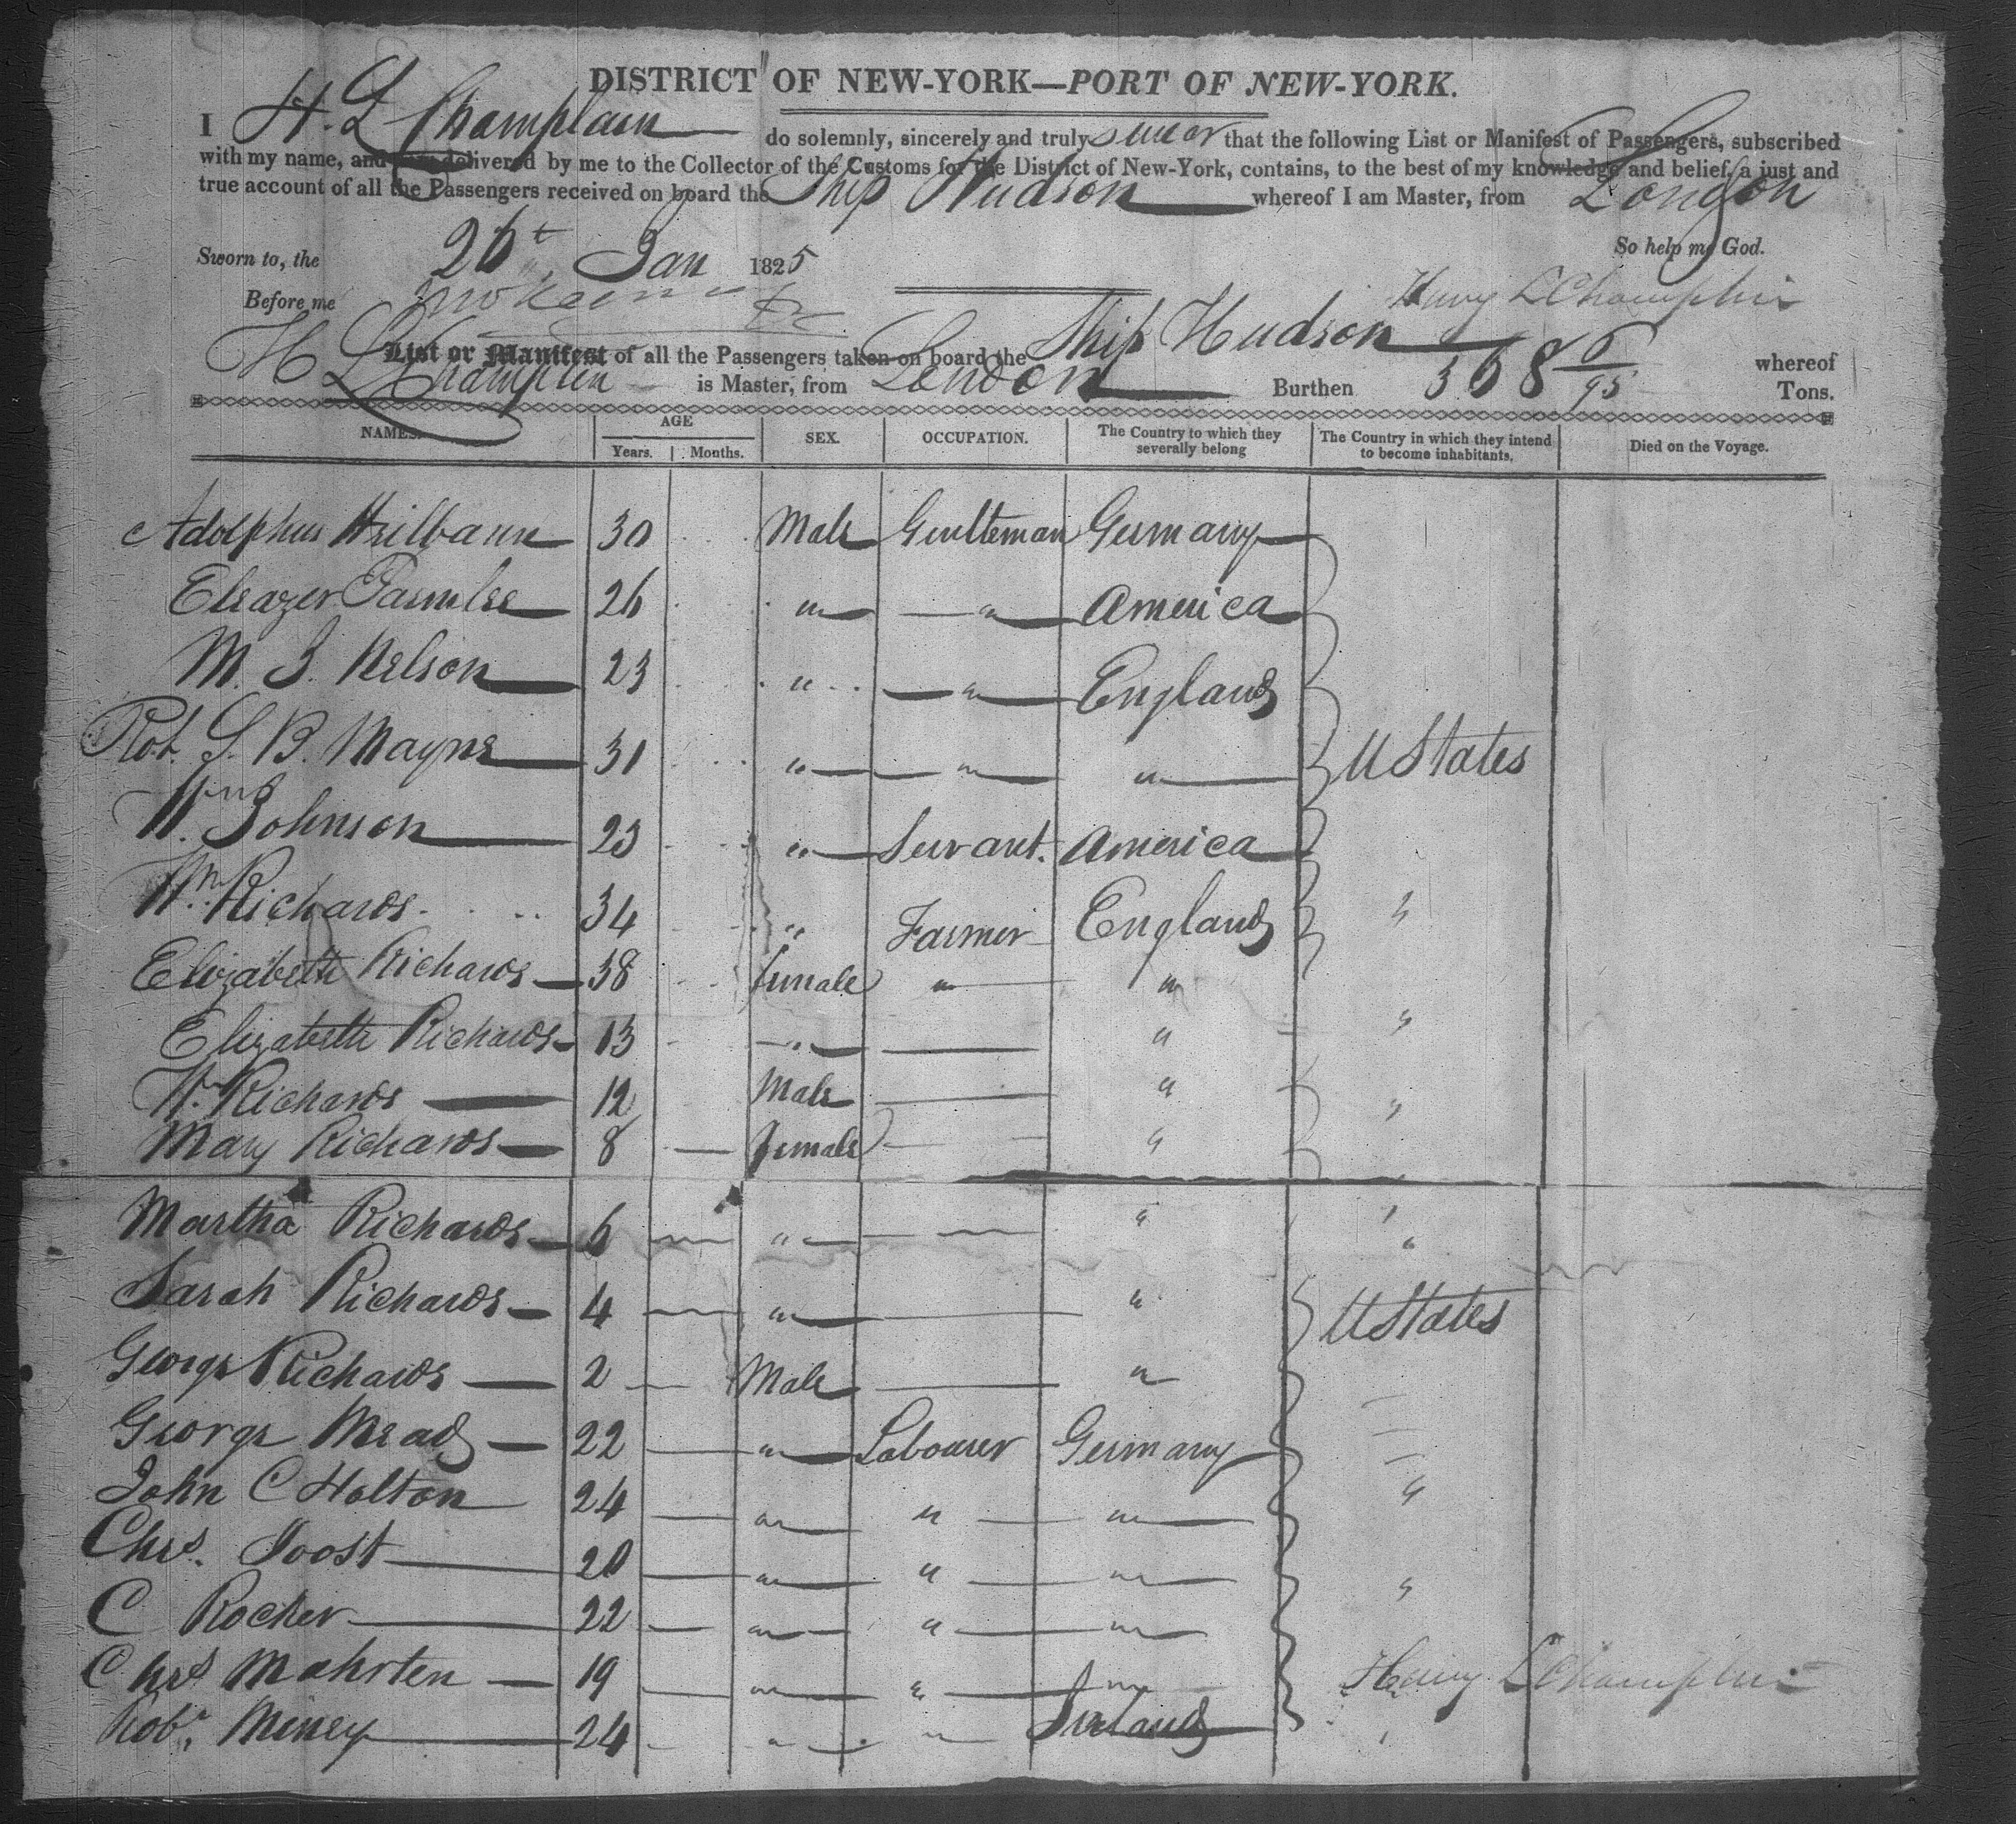 DISTRICT OF NEW-YORK—PORT OF NEW-YORK.
I H. L Champlain do solemnly, sincerely and truly swear that the following List or Manifest of Passengers, subscribed
with my name, and now delivered by me to the Collector of the Customs for the District of New-York, contains, to the best of my knowledge and belief, a just and
true account of all the Passengers received on board the Ship Hudson whereof I am Master, from London
So help me God.
Sworn to, the 26t Jan 1825
Before me
Henry L Champlin
List or Manifest of all the Passengers taken on board the Ship Hudson whereof
H L Champlin is Master, from London Burthen 368 6/95 Tons.
NAMES. AGE SEX. OCCUPATION. The Country to which they severally belong The Country in which they intend to become inhabitants. Died on the Voyage.
Years. Months.
Adolphus Heilbann 30 Male Gentleman Germany
Eleazer Parmlee 26 " " America
M. J. Nelson 23 " " England
Rob. S. B. Mayne 31 " " " U States
Wm Johnson 23 " Servant. America
Wm Richards 34 " Farmer England "
Elizabeth Richards 38 female " "
Elizabeth Richards 13 " — " "
Wm Richards — 12 Male — " "
Mary Richards — 8 — female — " "
Martha Richards — 6 — " — " "
Sarah Richards — 4 — " — " U States
George Richards — 2 — Male — "
George Mead — 22 — " Labourer Germany
John C Holton 24 — " " " "
Chrs. Joost 20 — " " "
C Rocher 22 — " " " "
Chrs Mahrten — 19 — " " "
Henry L Champlin
Robt. Miney 24 — " " Ireland "